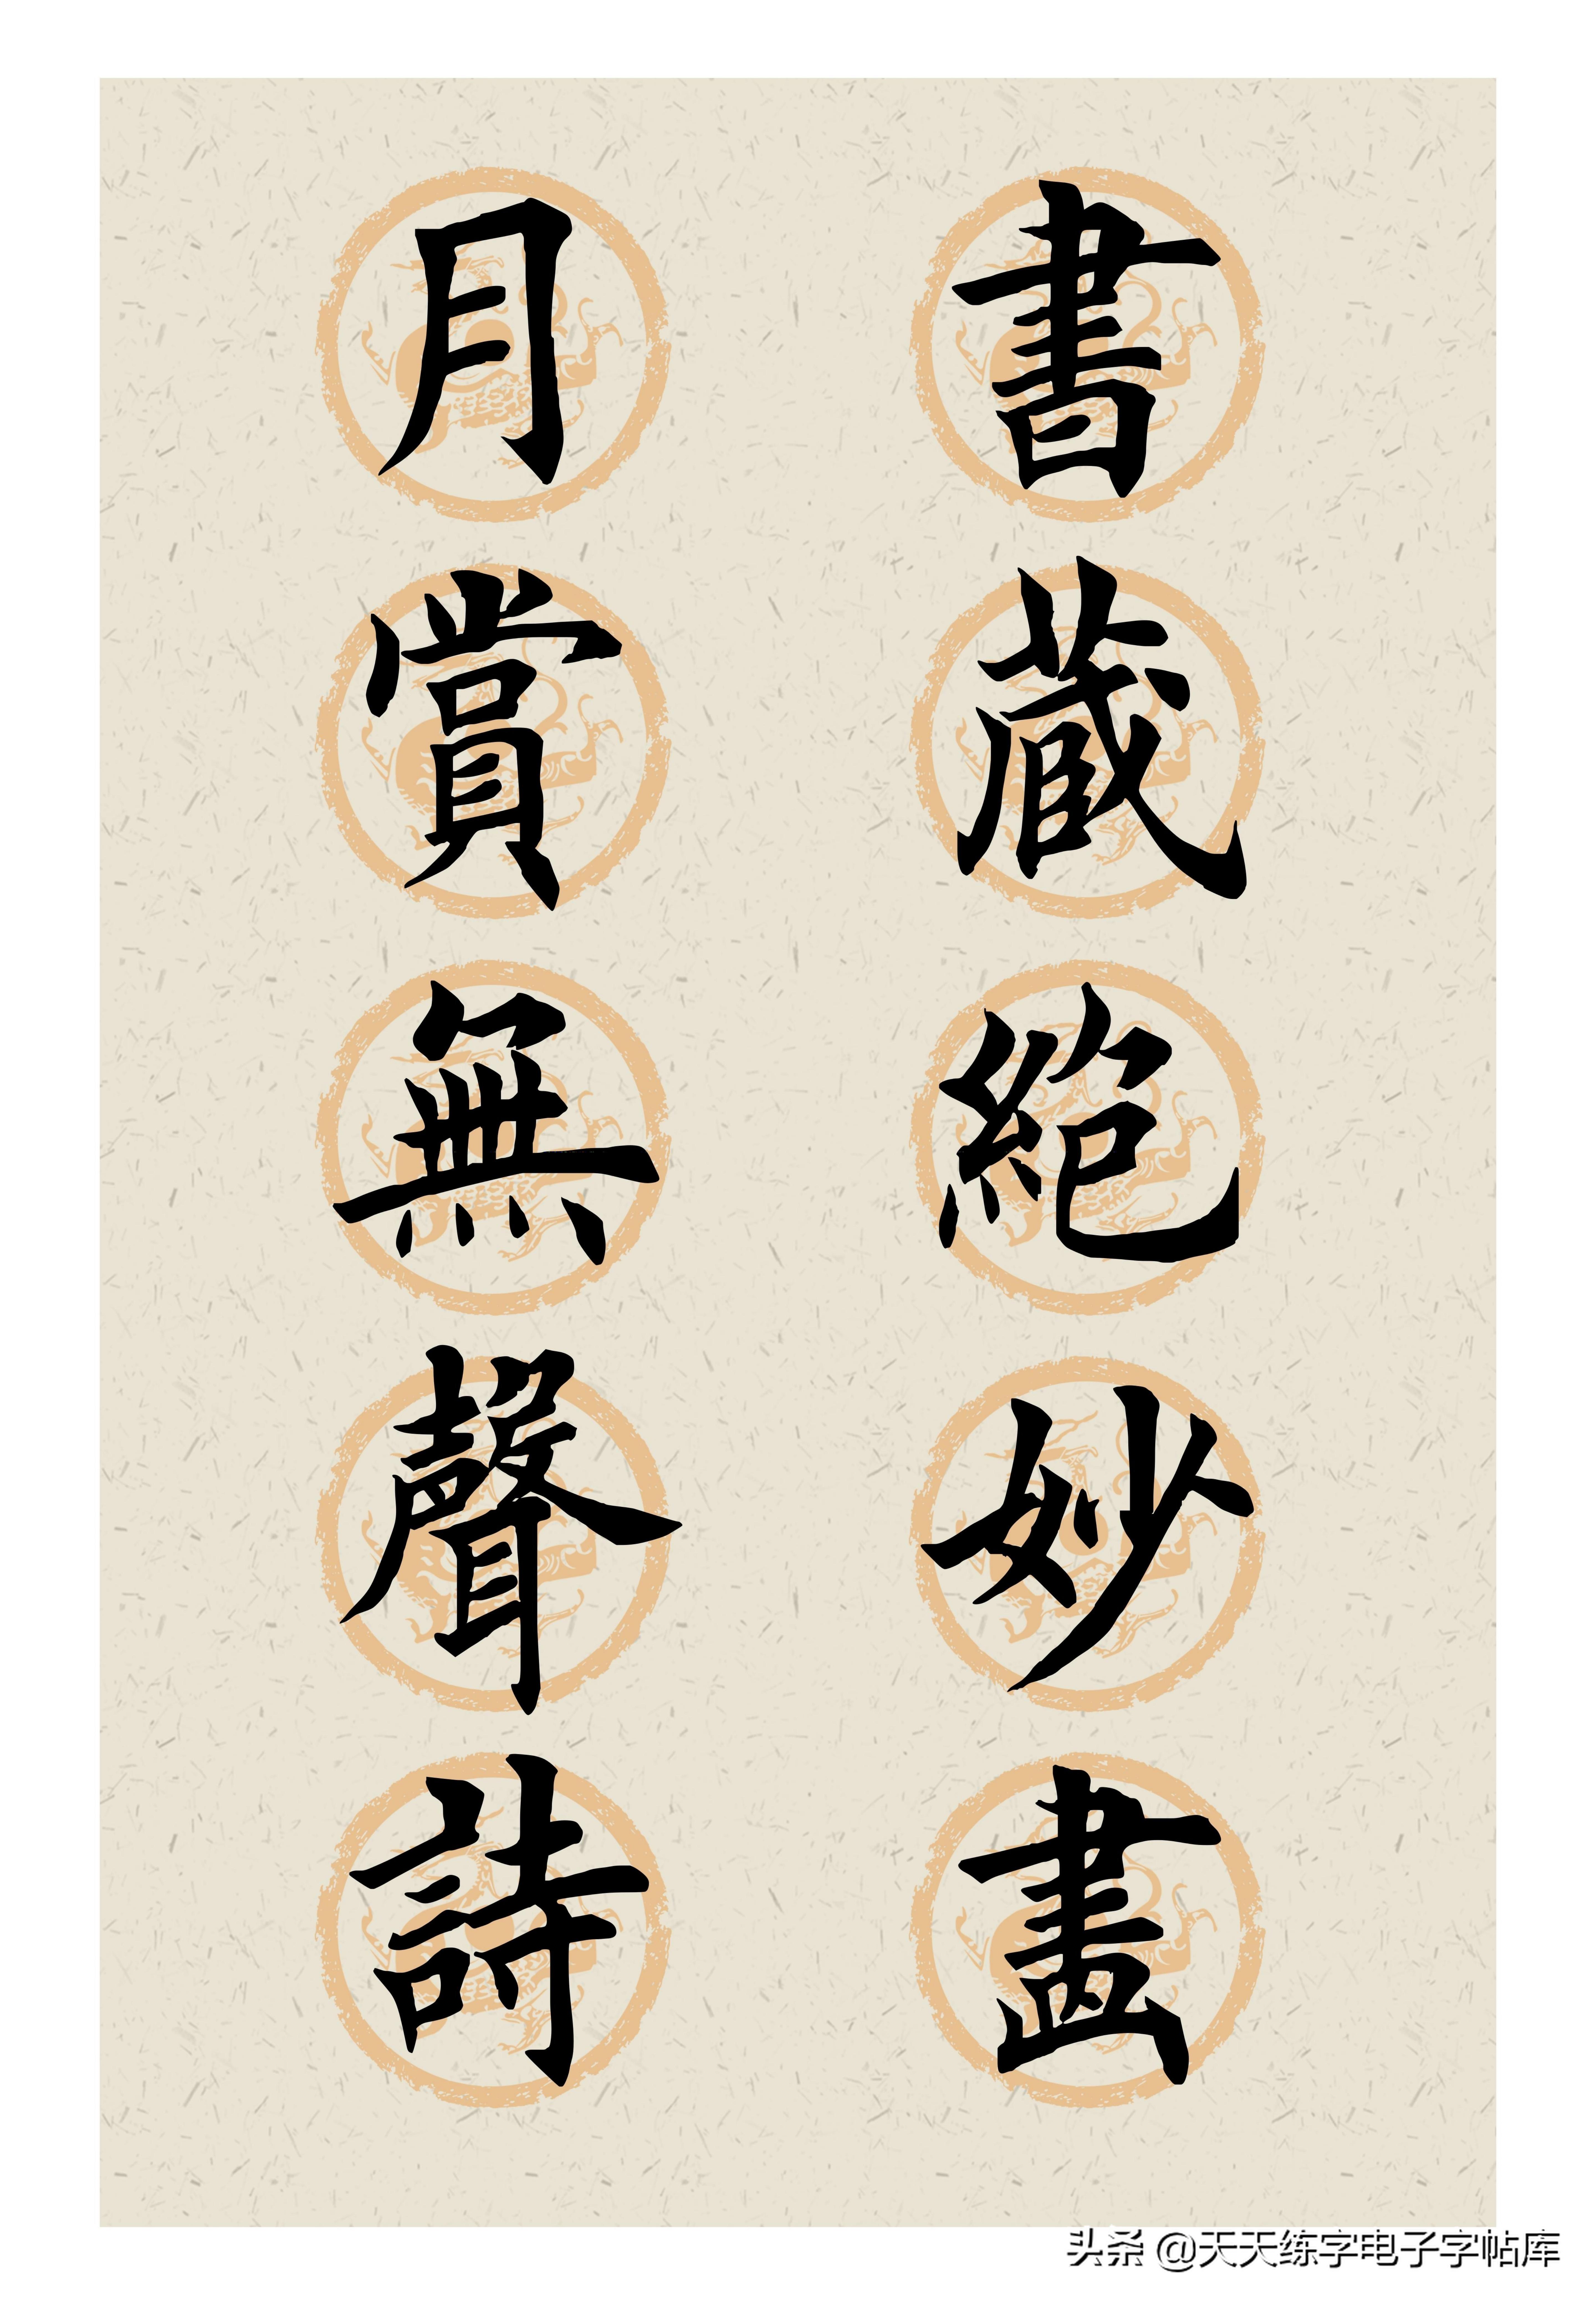 書藏絕妙畫
月賞無聲詩
头条 @天天练字电子字帖库